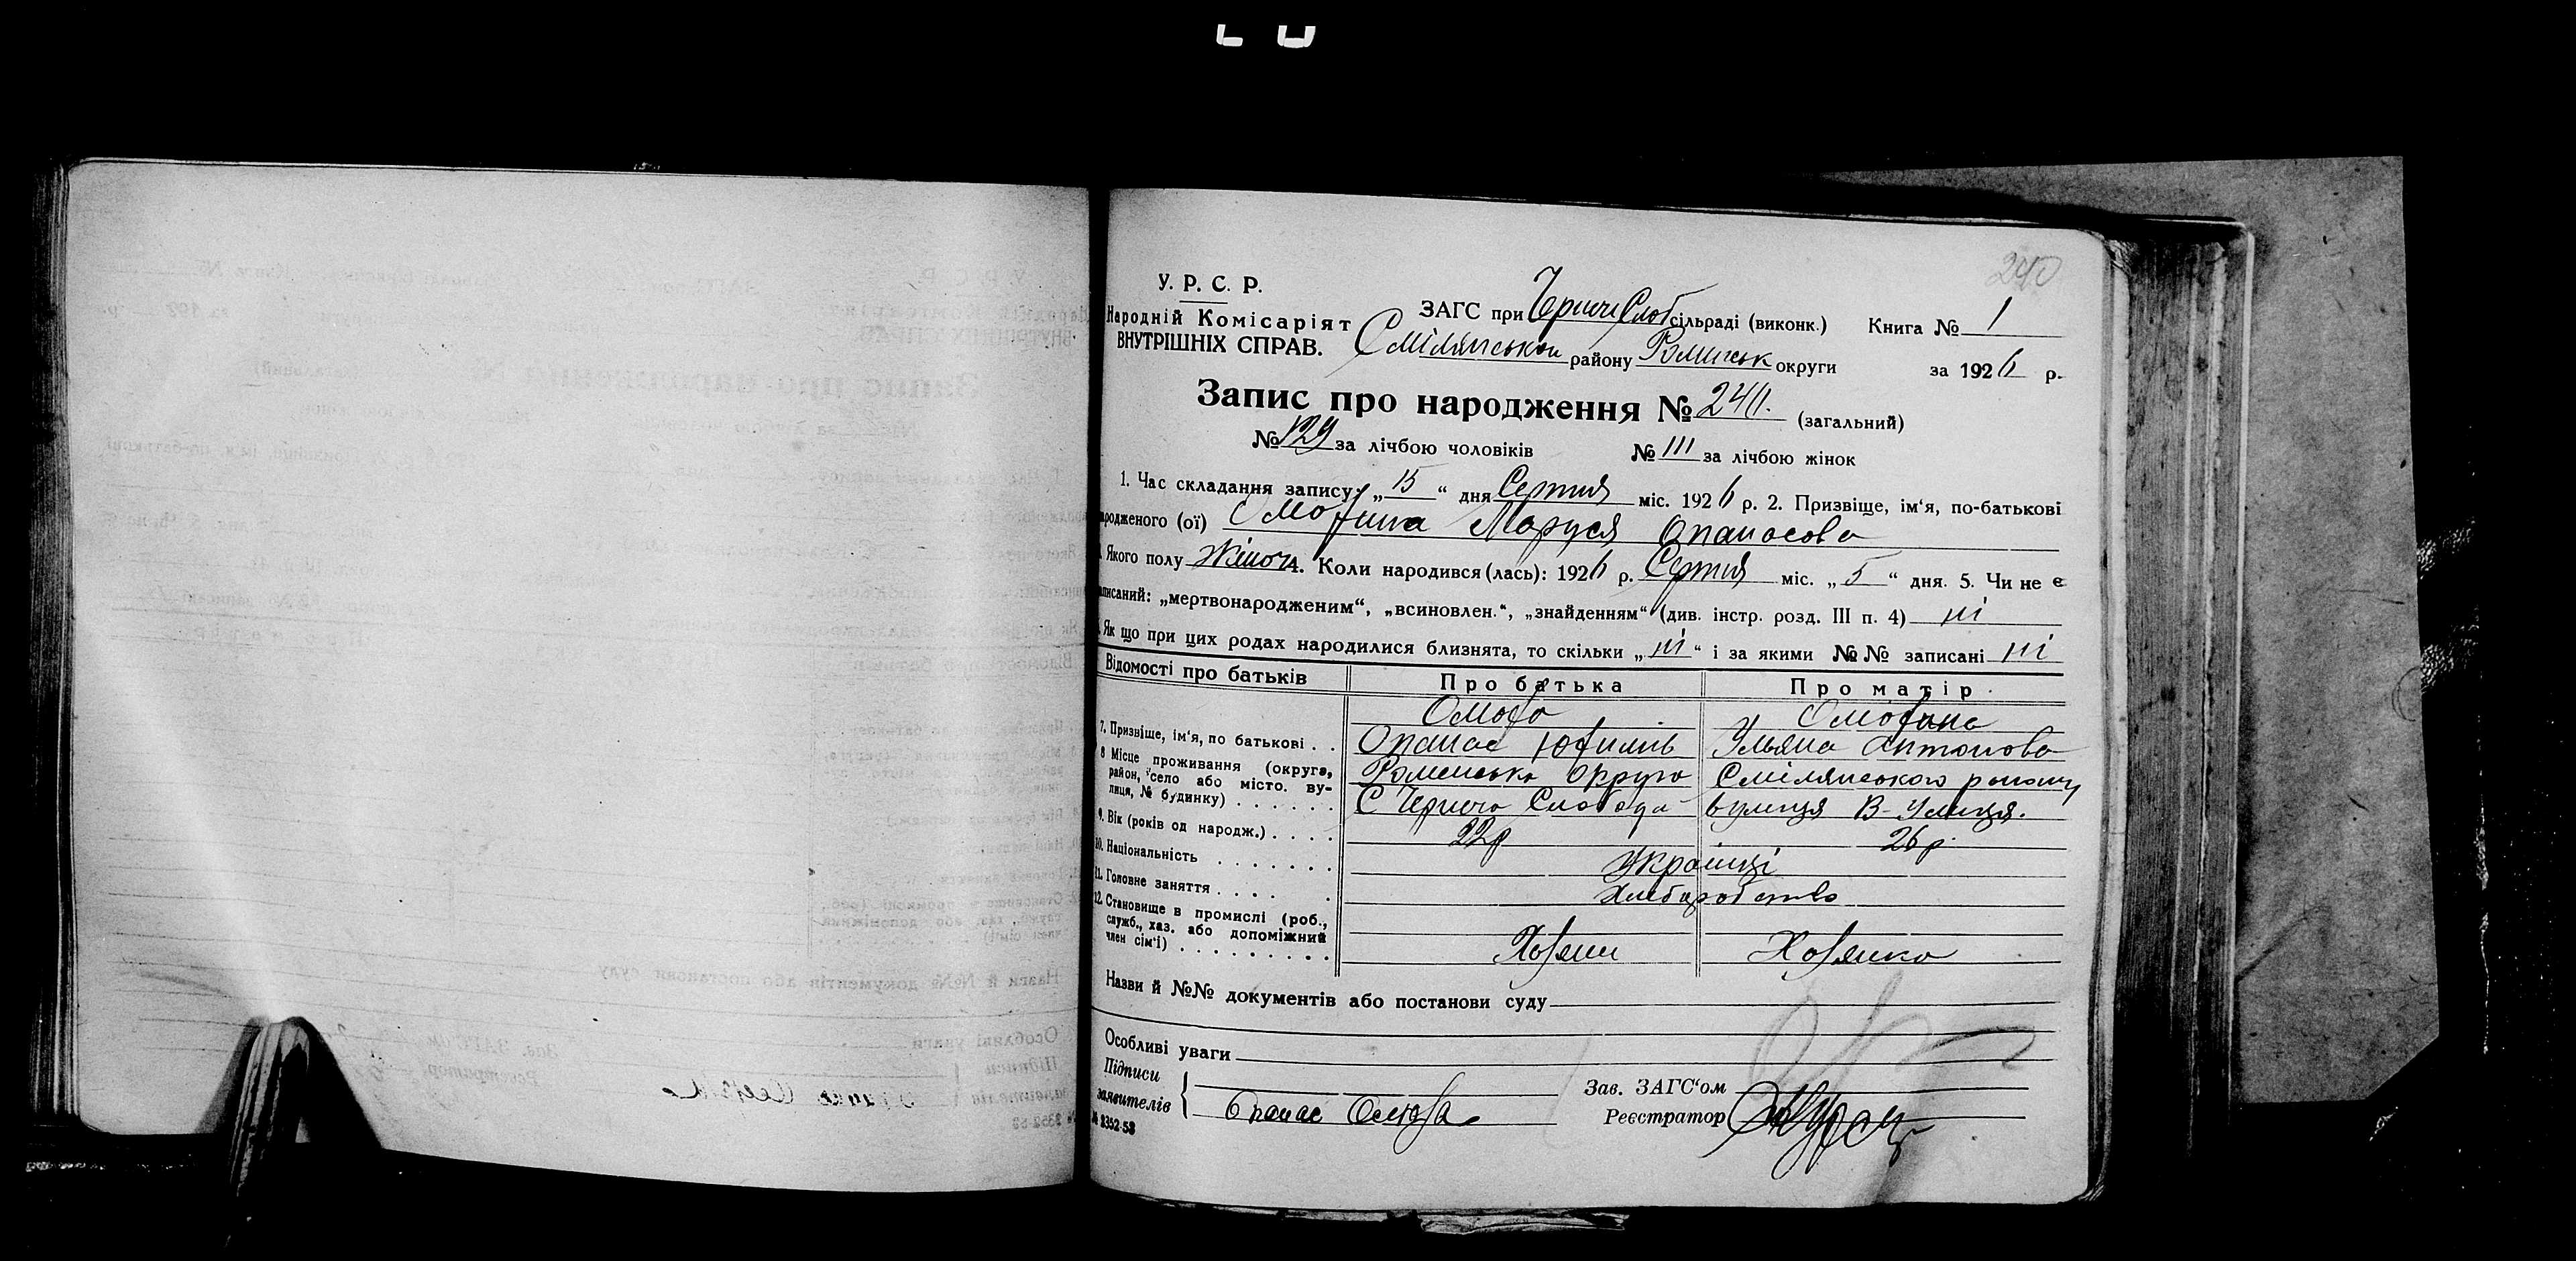 240
У. Р. С. Р.
Народній Комісаріят
ВНУТРІШНІХ СПРАВ.
ЗАГС при Черничи Слоб сільраді (виконк.) Книга № 1
Смілянськои району Роменськ округи за 1926 р.
Запис про народження № 240. (загальний)
№ 129 за лічбою чоловіків № 111 за лічбою жінок
1. Час складання запису: „15“ дня Серпня міс. 1926 р. 2. Призвіще, ім‘я, по-батькові
народженого (ої) Маруся Опанасова
Якого полу Жіноч 4. Коли народився (лась): 1926 р. Серпня міс. „5“ дня. 5. Чи не є
записаний: „мертвонародженим“, „всиновлен.“, „знайденням“ (див. інстр. розд. III п. 4) ні
Як що при цих родах народилися близнята, то скільки „ні“ і за якими №№ записані ні
Відомості про батьків Про батька Про матір
7. Призвіще, ім‘я, по батькові . . Опанас Юхимів Уляна Антонова
8 Місце проживання (округа, район, село або місто. вулиця, № будинку) . . . . . . Роменська округа Смілянського району
С Чернеча Слобода вулиця В-Улиця.
9. Вік (років од народж.) . . . . 22р 26р.
10. Національність . . . . . . . Українці
11. Головне заняття . . . . . Хлеборобство
12. Становище в промислі (роб., служб., хаз. або допоміжний член сім‘ї) . . . . . . . . . Хозяин Хозяйка
Назви й №№ документів або постанови суду
Особливі уваги
Підписи
заявителів Опанас
Зав. ЗАГС‘ом
Реєстратор
№ 2352-53